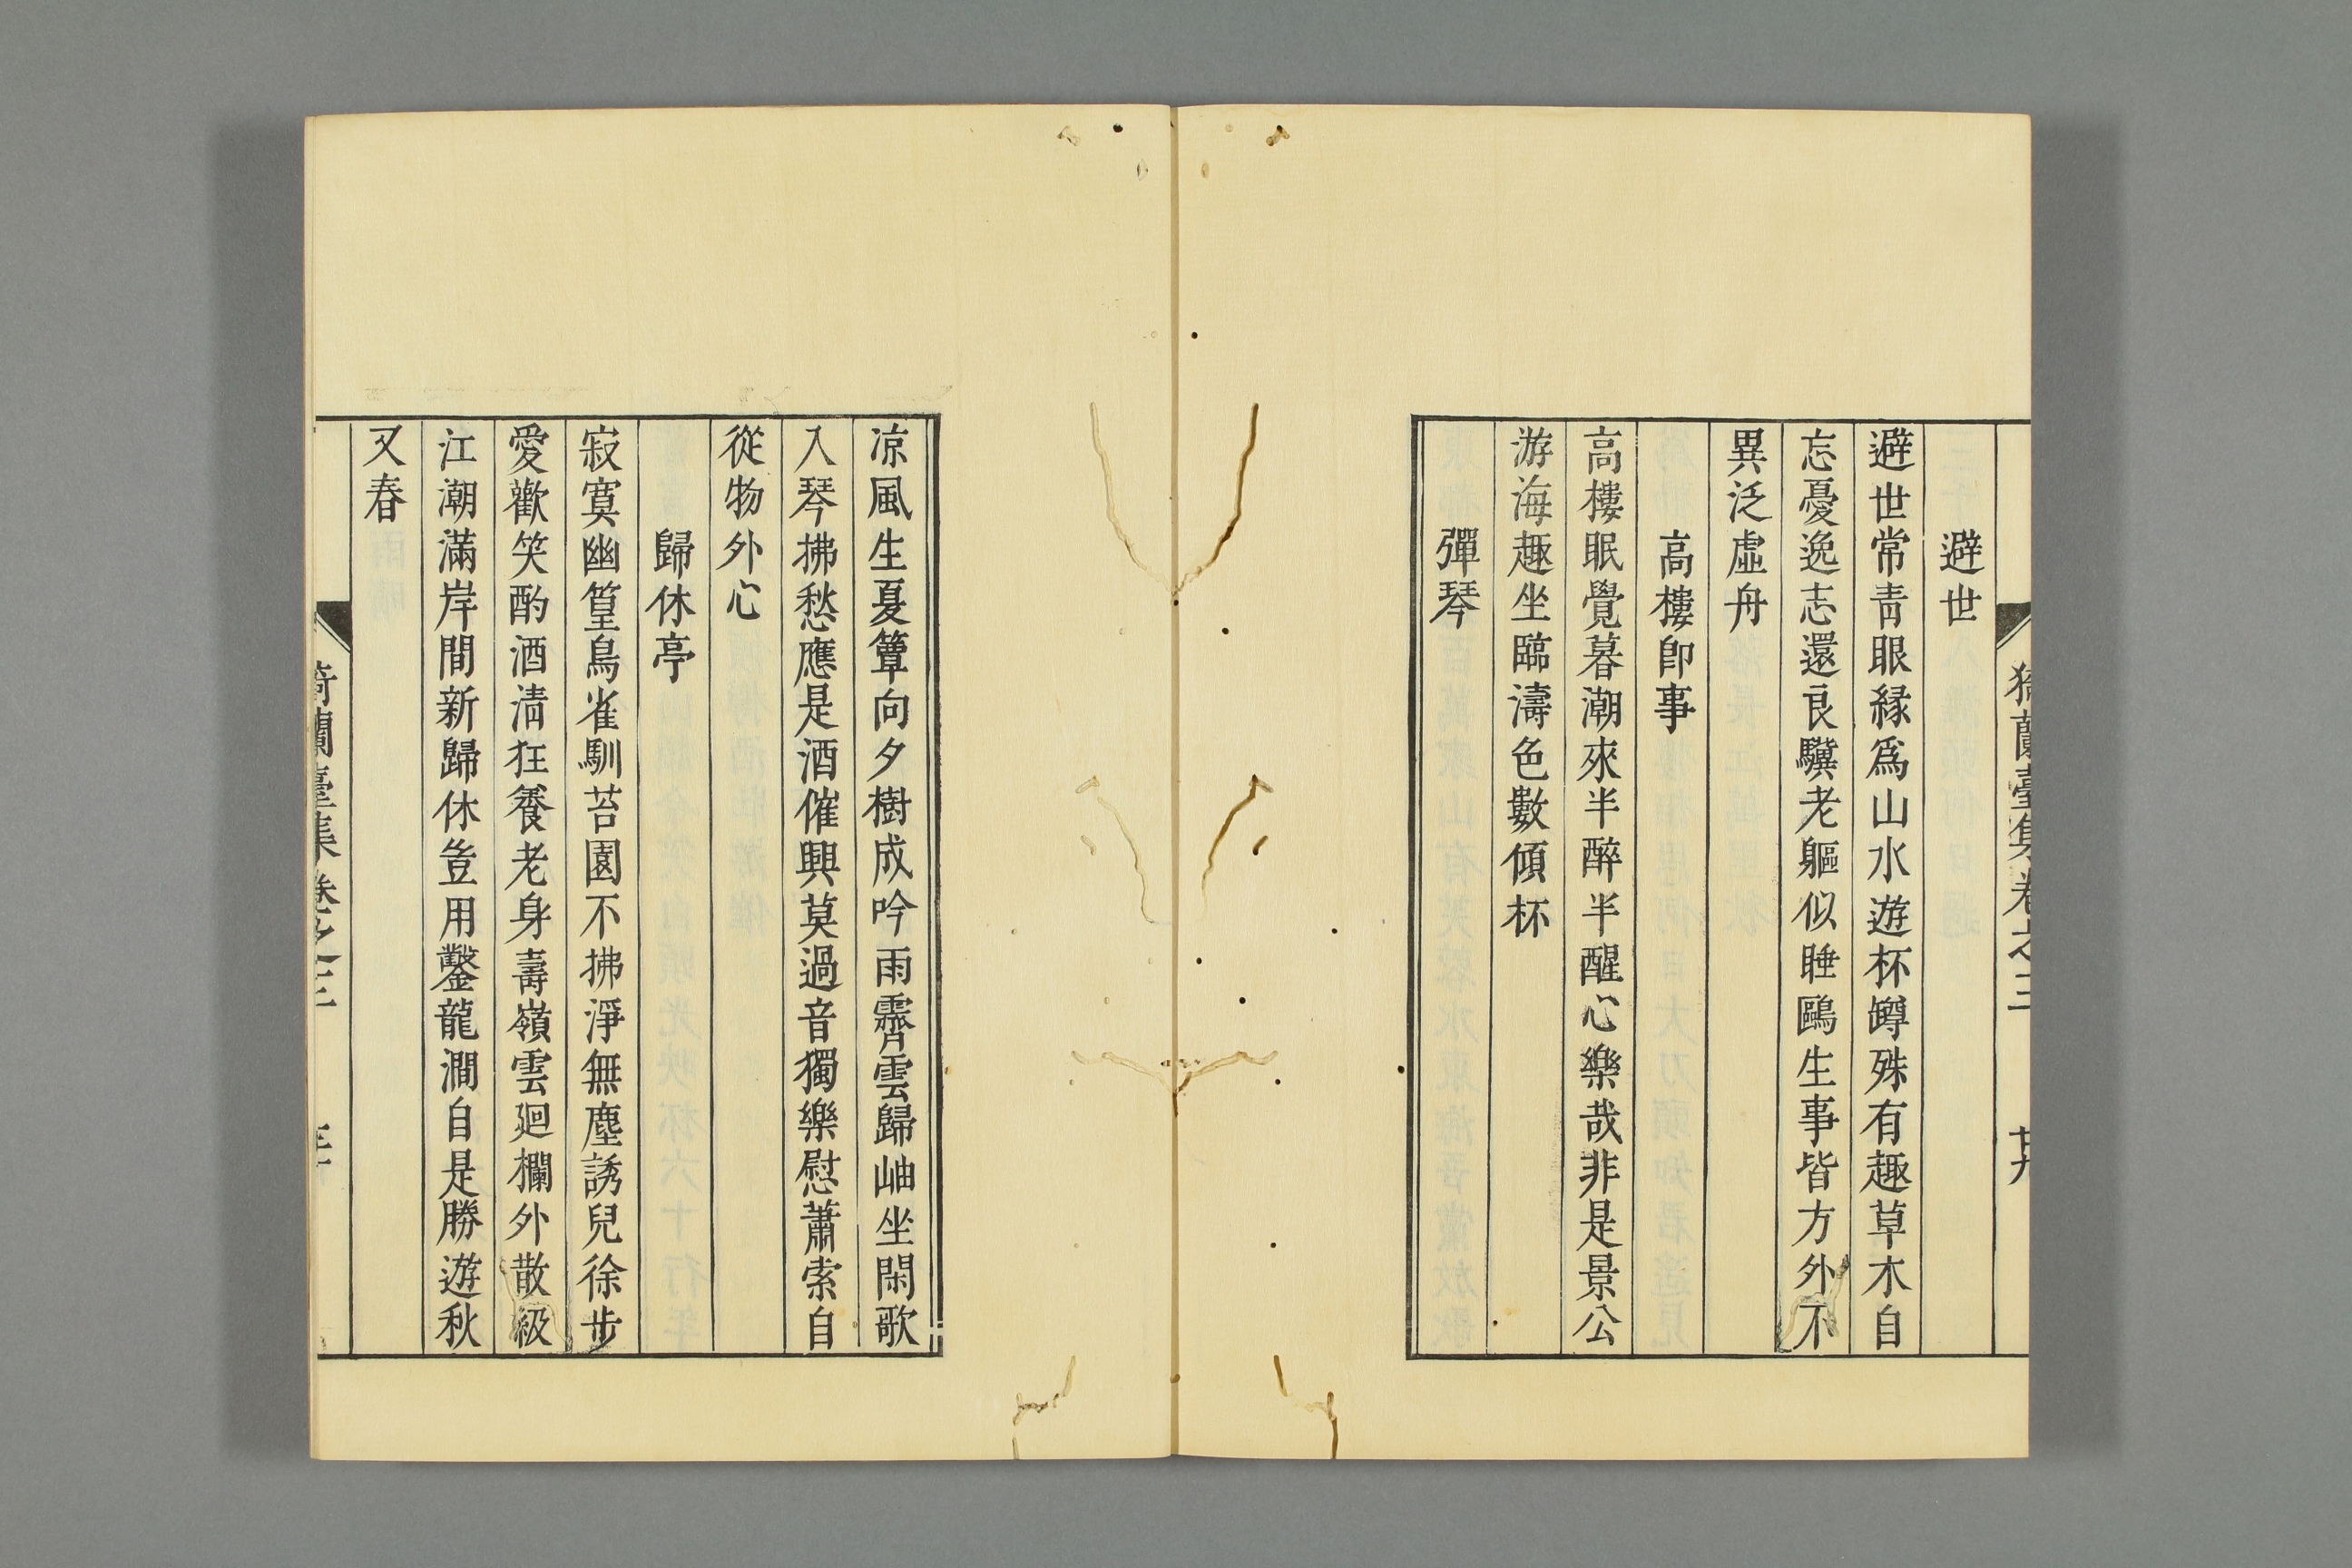 猗蘭臺集卷之三
避世
避世常靑眼緣爲山水遊杯罇殊有趣草木自
忘憂逸志還良驥老軀似睡鷗生事皆方外不
異泛虛舟
高樓卽事
高樓眠覺暮潮來半醉半醒心樂哉非是景公
游海趣坐臨濤色數傾杯
彈琴
凉風生夏簟向夕樹成吟雨霽雲歸岫坐閑歌
入琴拂愁應是酒催興莫過音獨樂慰蕭索自
從物外心
歸休亭
寂寞幽篁鳥雀馴苔園不拂淨無塵誘兒徐步
愛歡笑酌酒淸狂養老身壽嶺雲廻欄外散級
江潮滿岸間新歸休豈用鑿龍澗自是勝遊秋
又春
猗蘭臺集卷之三